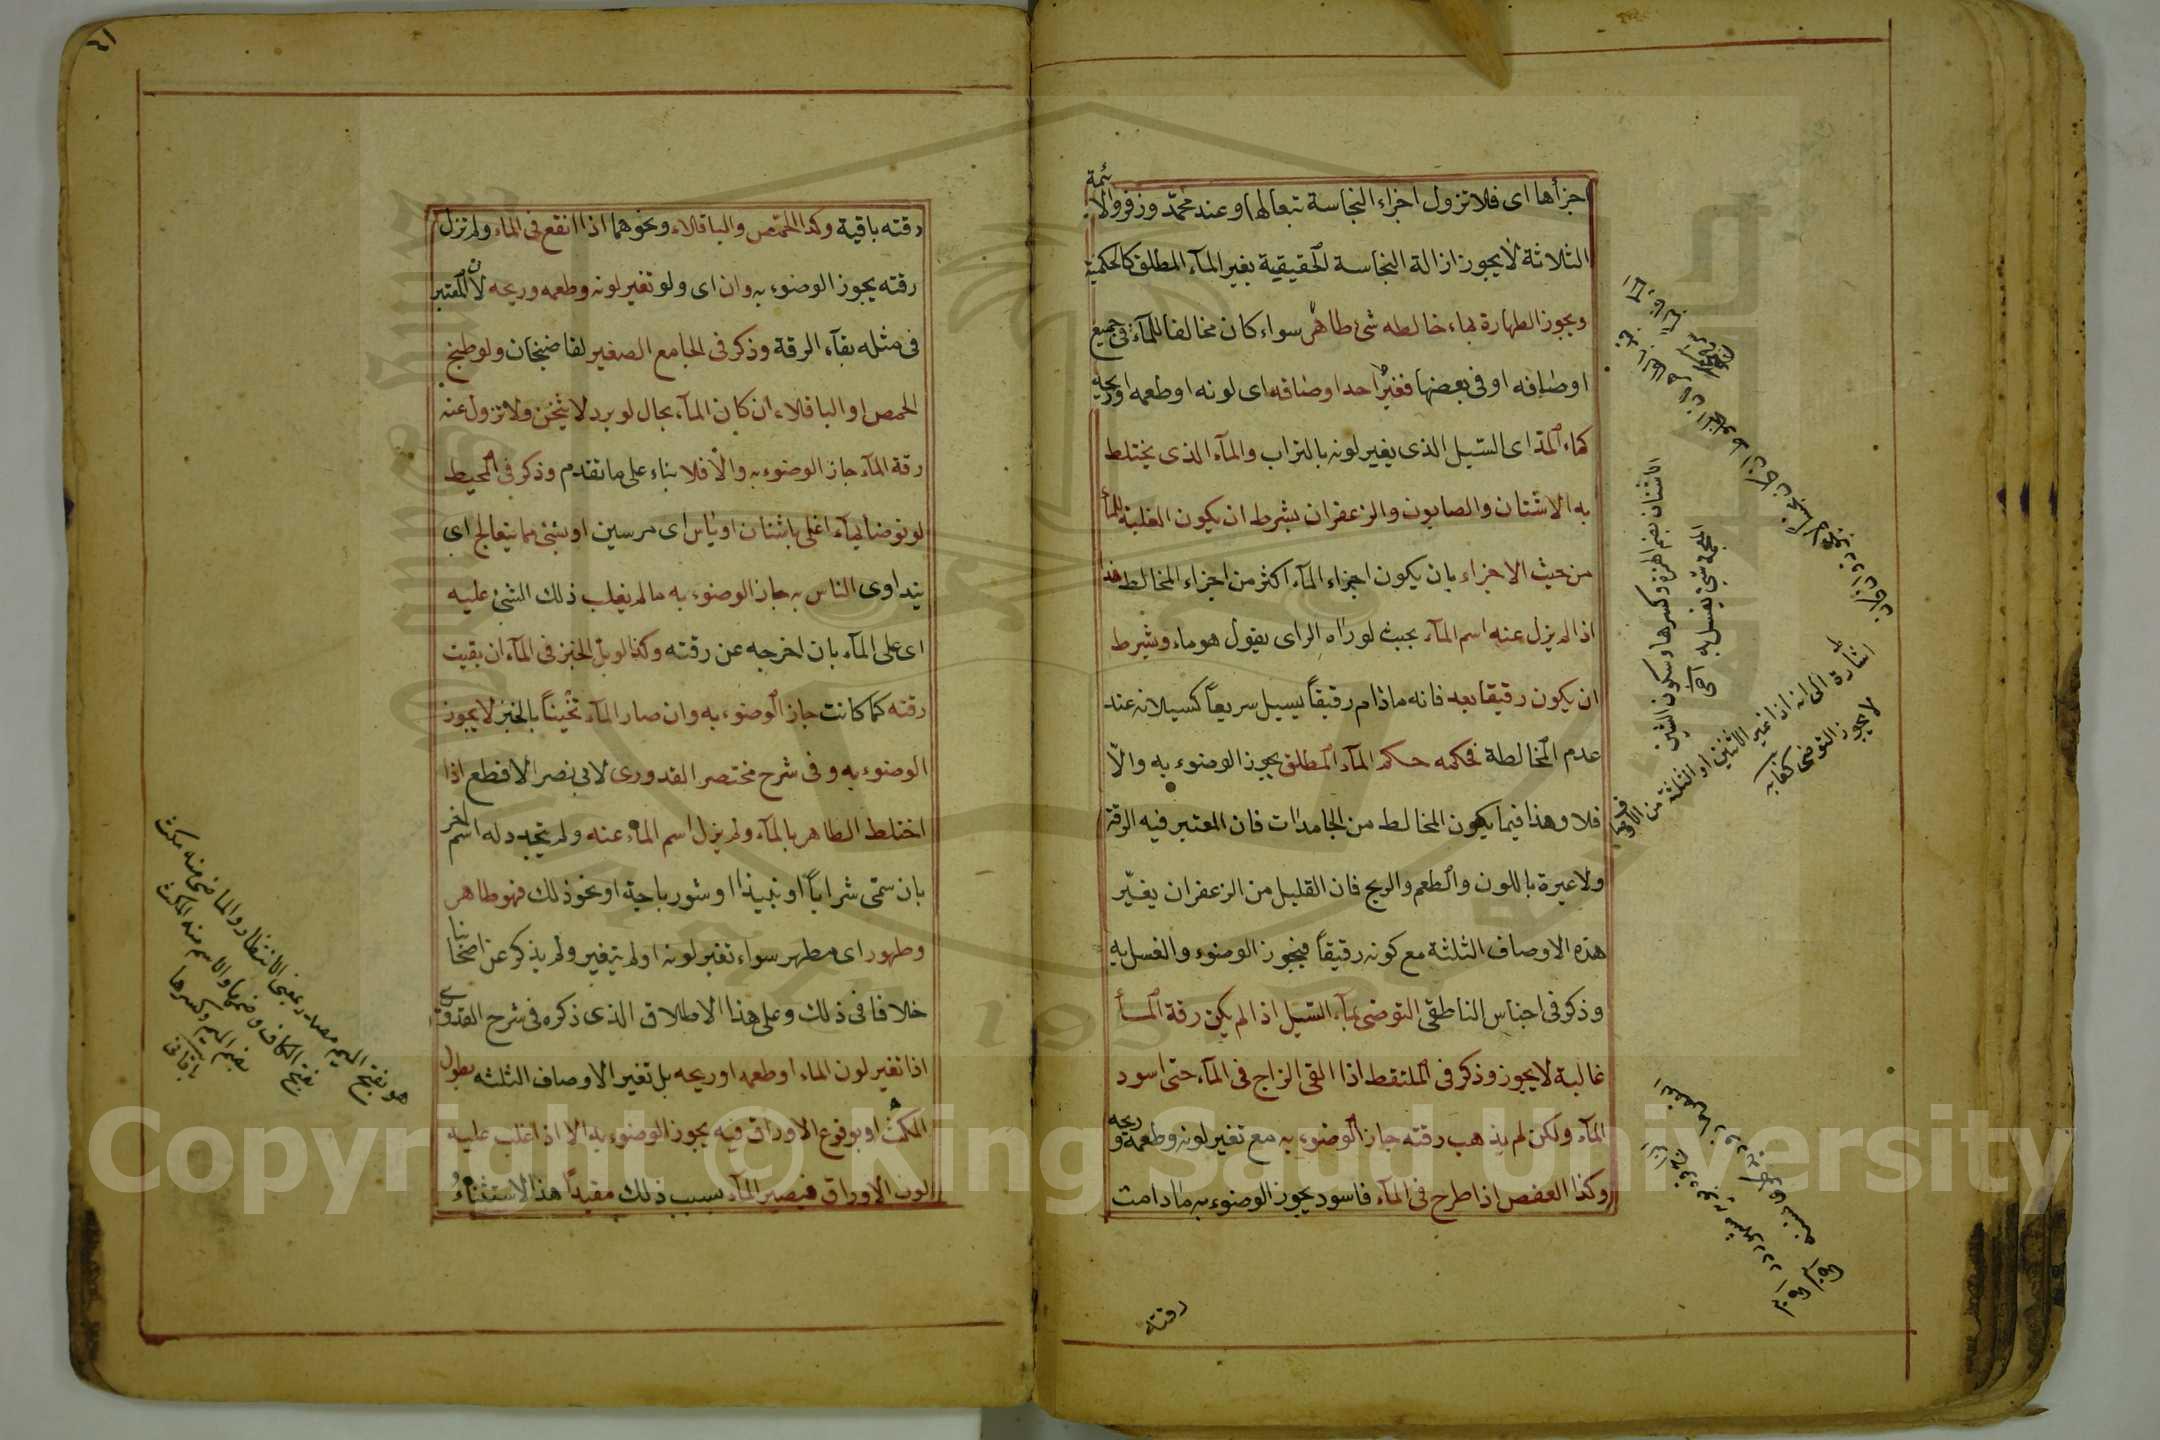 اجزأها اى فلا تزول اجزاء النجاسة تبعا لها وعند محمّد وزفر والائمة
الثلاثة لا يجوز ازالة النجاسة الحقيقية بغير المآء المطلق كالحكمية
ويجوز الطهارة بماء خالطه شئ طاهر سواء كان مخالفا للمآء فى جميع
اوصافه او فى بعضها فغيّر احد اوصافه اى لونه او طعمه او ريحه
كماء المدّ اى السّيل الذى يغير لونه بالتراب والمآء الذى يختلط
به الاشنان والصابون والزعفران بشرط ان يكون الغلبة للمآء
من حيث الاجزاء بان يكون اجزاء المآء اكثر من اجزاء المخالط هذا
اذا لم يزل عنه اسم المآء بحيث لو رآه الراى يقول هو ماء ويشرط
ان يكون رقيقا بعد فانه ما دام رقيقاً يسيل سريعاً كسيلانه عند
عدم المخالطة فحكمه حكم المآء المطلق يجوز الوضوء به والاّ
فلا وهذا فيما يكون المخالط من الجامدات فان المعتبر فيه الرقة
ولا عبرة باللون والطعم والريح فان القليل من الزعفران يغيّر
هذه الاوصاف الثلثة مع كونه رقيقاً فيجوز الوضوء والغسل به
وذكر فى اجناس الناطقى التوضى بمآء السّيل اذا لم يكن رقة المآء
غالبة لا يجوز وذكر فى الملتقط اذا القى الزاج فى المآء حتى اسود
المآء ولكن لم يذهب رقته جاز الوضوء به مع تغير لونه وطعمه وريحه
وكذا العفص اذا طرح فى المآء فاسود يجوز الوضوء به ما دامت
رقته
الاشنان بضم الهمزة وكسرها وسكون الشين
المعجمة شئ يغسل به
اشارة الى انه اذا غير الاثنين او الثلثة من الاوصاف
لا يجوز التوضى كفايه
٤١
رقته باقية وكذا الحمّص والباقلاء ونحوهما اذا انقع فى الماء ولم تزل
رقته يجوز الوضوء به وان اى ولو تغير لونه وطعمه وريحه لان المعتبر
فى مثله بقآء الرقة وذكر فى الجامع الصغير لقاضيخان ولو طبخ
الحمص او الباقلاء ان كان المآء بحال لو برد لا يثخن ولا تزول عنه
رقة المآء جاز الوضوء به والاّ فلا بناء على ما تقدم وذكر فى المحيط
لو توضأ بمآء اغلى باشنان او بآس اى مرسين او بشئ مما يتعالج اى
يتداوى الناس به جاز الوضوء به ما لم يغلب ذلك الشئ عليه
اى على المآء بان اخرجه عن رقته وكذا لو بلّ الخبز فى المآء ان بقيت
رقته كما كانت جاز الوضوء به وان صار المآء ثخيناً بالخبز لا يجوز
الوضوء به وفى شرح مختصر القدورى لابى نصر الاقطع اذا
اختلط الطاهر بالمآء ولم يزل اسم الماء عنه ولم يتجدد له اسم آخر
بان سمّى شراباً او نبيذا او شورباجة او نحو ذلك فهو طاهر
وطهور اى مطهر سواء تغير لونه او لم يتغير ولم يذكر عن اصحابنا
خلافا فى ذلك وعلى هذا الاطلاق الذى ذكره فى شرح القدورى
اذا تغير لون الماء او طعمه او ريحه بل تغير الاوصاف الثلثه بطول
المكث او بوقوع الاوراق فيه يجوز الوضوء به الا اذا غلب عليه
لون الاوراق فيصير المآء بسبب ذلك مقيداً هذا الاستثناء
هو بفتح الميم مصدر بمعنى الانتظار والماضى منه مكث
بفتح الكاف وضمها والاسم منه المكث
بضم الميم وكسرها